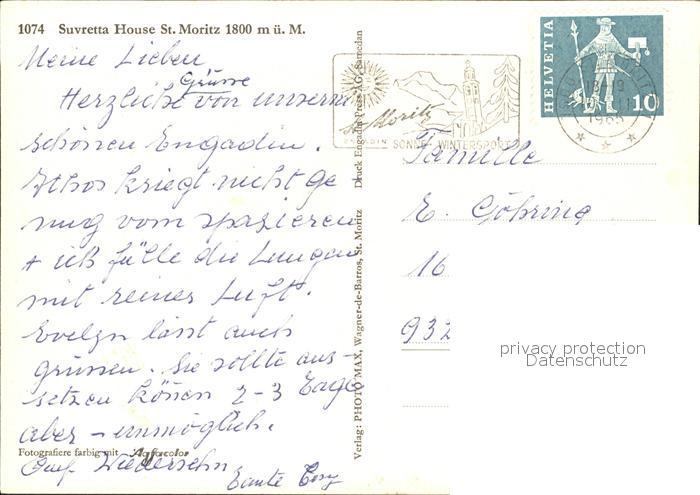 1074 Suvretta House St. Moritz 1800 m ü. M.
Meine Lieben
Grüsse
Herzliche von unserm
schönen Engadin.
Athos kriegt nicht ge
nug vom spazieren
+ ich fülle die Lungen
mit reiner Luft.
Evelyn lässt auch
grüssen. Sie sollte aus-
setzen können 2-3 Tage
aber - unmöglich.
Fotografiere farbig mit Agfacolor
Auf Wiedersehn
Tante
Verlag: PHOTO MAX, Wagner-de-Barros, St. Moritz Druck Engadin Press AG, Samedan
St. Moritz
ENGADIN SONNE WINTERSPORT
HELVETIA
10
1968
Familie
E. Göhring
16
932
privacy protection
Datenschutz